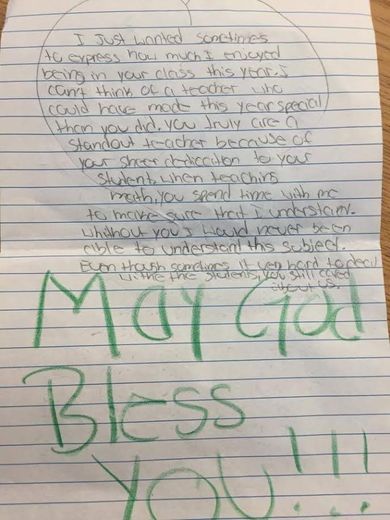 I Just wanted sometimes
to express how much I enjoyed
being in your class this year. I
can't think of a teacher who
could have made this year special
than you did. you truly are a
standout teacher because of
your sheer dedication to your
student, when teaching
math, you spend time with me
to make sure that I understam.
whithout you I would never been
able to understand this subject.
Even though sometimes it hard to deal
withe the students, you still cared
about us.
May God
Bless
YOU!!!